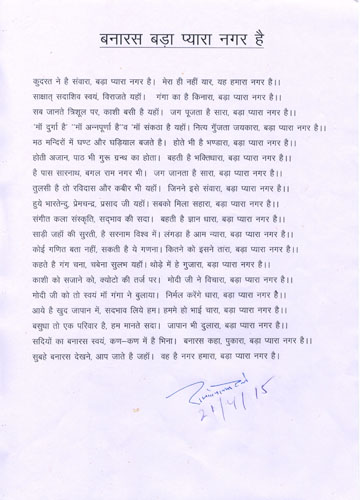 बनारस बड़ा प्यारा नगर है
कुदरत ने है संवारा, बड़ा प्यारा नगर है। मेरा ही नहीं यार, यह हमारा नगर है।।
साक्षात् सदाशिव स्वयं, विराजते यहाँ। गंगा का है किनारा, बड़ा प्यारा नगर है।।
सब जानते त्रिशूल पर, काशी बसी है यहाँ। जग पूजता है सारा, बड़ा प्यारा नगर है।।
'माँ दुर्गा है' 'माँ अन्नपूर्णा है'व 'माँ संकठा है यहाँ। नित्य गूँजता जयकारा, बड़ा प्यारा नगर है।।
मठ मन्दिरों में घण्ट और घड़ियाल बजते है। होते भी है भण्डारा, बड़ा प्यारा नगर है।।
होती अजान, पाठ भी गुरू ग्रन्थ का होता। बहती है भक्तिधारा, बड़ा प्यारा नगर है।।
है पास सारनाथ, बगल राम नगर भी। जग जानता है सारा, बड़ा प्यारा नगर है।।
तुलसी है तो रविदास और कबीर भी यहाँ। जिनने इसे संवारा, बड़ा प्यारा नगर है।।
हुये भारतेन्दु, प्रेमचन्द्र, प्रसाद जी यहाँ। सबको मिला सहारा, बड़ा प्यारा नगर है।।
संगीत कला संस्कृति, सद्भाव की सदा। बहती है ज्ञान धारा, बड़ा प्यारा नगर है।।
साड़ी जहाँ की सुरती, है सरनाम विश्व में। लंगड़ा है आम न्यारा, बड़ा प्यारा नगर है।।
कोई गणित बता नहीं, सकती है ये गणना। कितने को इसने तारा, बड़ा प्यारा नगर है।।
कहते है गंग चना, चबेना सुलभ यहाँ। थोड़े में हे गुजारा, बड़ा प्यारा नगर है।।
काशी को सजाने को, क्योटो की तर्ज पर। मोदी जी ने विचारा, बड़ा प्यारा नगर है।।
मोदी जी को तो स्वयं माँ गंगा ने बुलाया। निर्मल करेंगे धारा, बड़ा प्यारा नगर है।।
आये है खुद जापान में, सदभाव लिये हम। हममे हो भाई चारा, बड़ा प्यारा नगर है।।
बसुधा तो एक परिवार है, हम मानते सदा। जापान भी दुलारा, बड़ा प्यारा नगर है।।
सदियों का बनारस स्वयं, कण–कण में है भिना। बनारस कहा, पुकारा, बड़ा प्यारा नगर है।।
सुबहे बनारस देखने, आप जाते है जहाँ। वह है नगर हमारा, बड़ा प्यारा नगर है।
21/4/15